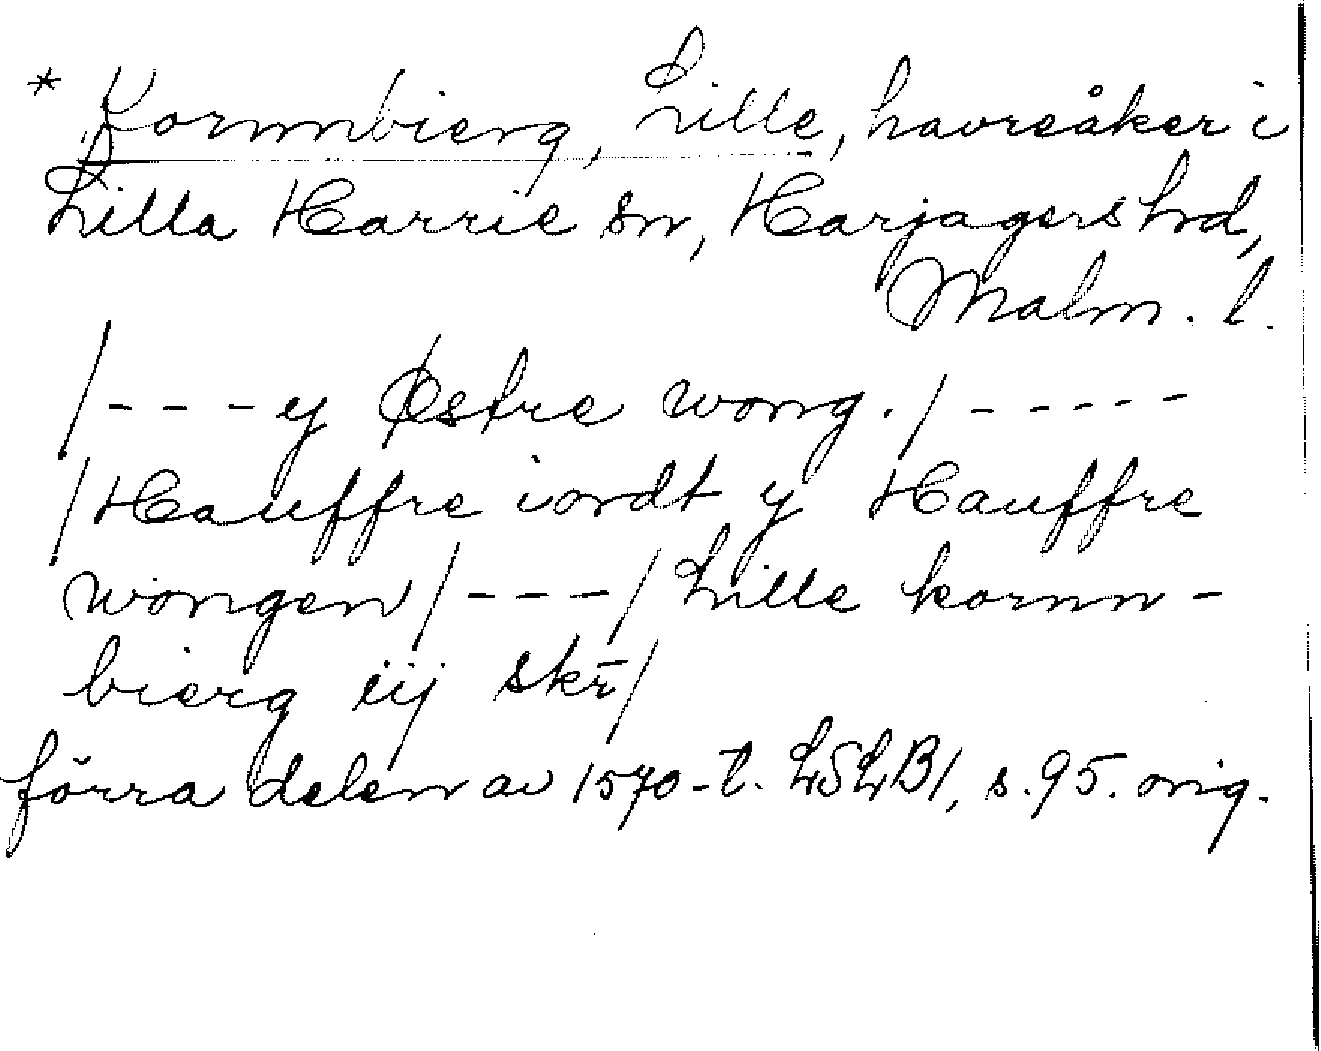 * Kornnbierg, Lille, havreåker i
Lilla Harrie sn, Harjagers hd,
Malm. l.
/---y Østre wong./-----
/Hauffre iordt y Hauffre
wongen/---/Lille kornn-
bierg iij skr̄/
förra delen av 1570-t. LSLB1, s.95. orig.